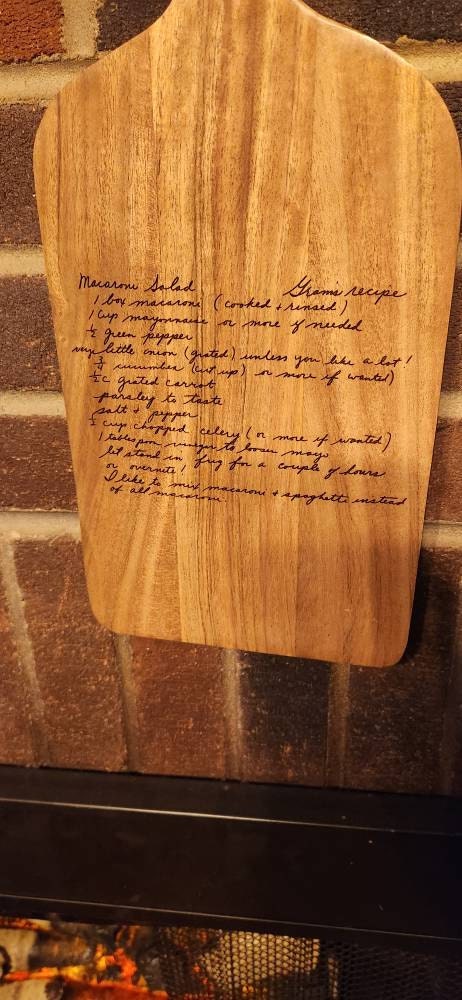 Macaroni Salad Gram's recipe
1 box macaroni (cooked + rinsed)
1 cup mayonnaise or more if needed
½ green pepper
very little onion (grated) unless you like a lot!
cucumber (cut up) or more if wanted)
½ c grated carrot
parsley to taste
salt + pepper
½ cup chopped celery (or more if wanted)
1 tablespoon vinegar to loosen mayo
let stand in frig for a couple of hours
or overnite!
I like to mix macaroni + spaghetti instead
of all macaroni